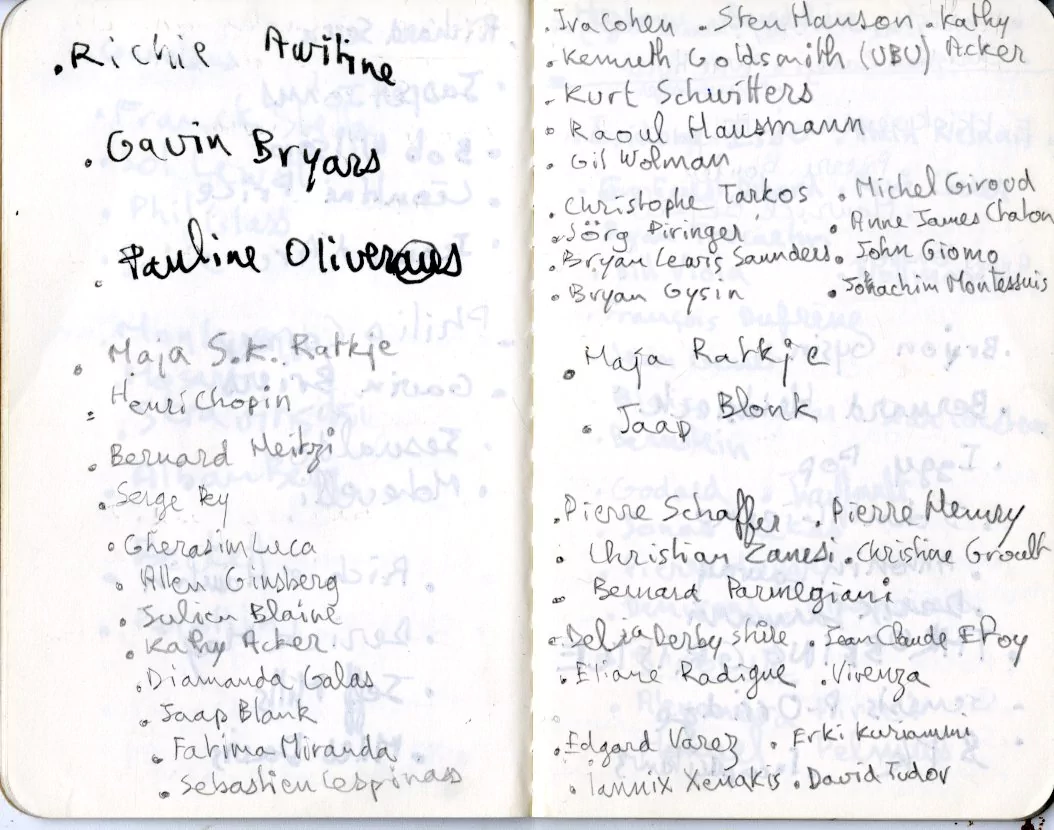 . Richie Awitine
. Gavin Bryars
. Pauline Oliveraes
. Maja S.K. Ratkje
. Henri Chopin
. Bernard Meitzi
. Serge Pey
. Gherasim Luca
. Allen Ginsberg
. Julien Blaine
. Kathy Acker
. Diamanda Galas
. Jaap Blank
. Fatima Miranda
. Sebastien Lespinass
. Ira Cohen . Sten Hanson . Kathy Acker
. Kenneth Goldsmith (UBU)
. Kurt Schwitters
. Raoul Hausmann
. Gil Wolman
. Christophe Tarkos . Michel Giroud
. Jörg Piringer . Anne James Chaton
. Bryan Lewis Saunders . John Giorno
. Bryan Gysin . Johachim Montessuis
. Maja Ratkje
. Jaap Blonk
. Pierre Schaffer . Pierre Henry
. Christian Zanesi . Christine Groult
. Bernard Parmegiani
. Delia Derbyshire . Jean Claude Eloy
. Eliane Radigue . Vivenza
. Edgard Varez . Erki Kuriamni
. Iannix Xenakis . David Tudor